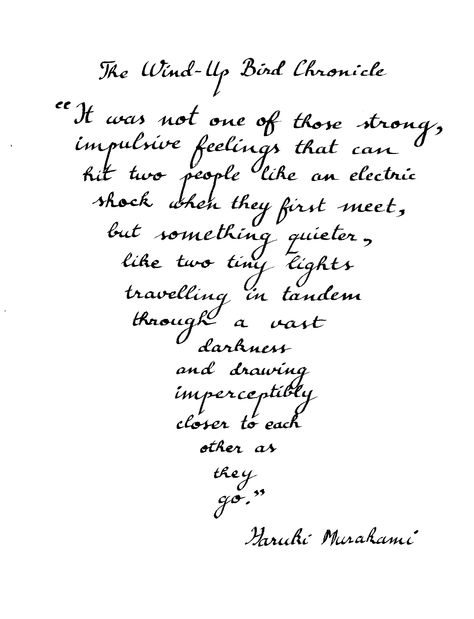 The Wind-Up Bird Chronicle
"It was not one of those strong,
impulsive feelings that can
hit two people like an electric
shock when they first meet,
but something quieter,
like two tiny lights
travelling in tandem
through a vast
darkness
and drawing
imperceptibly
closer to each
other as
they
go."
Haruki Murakami